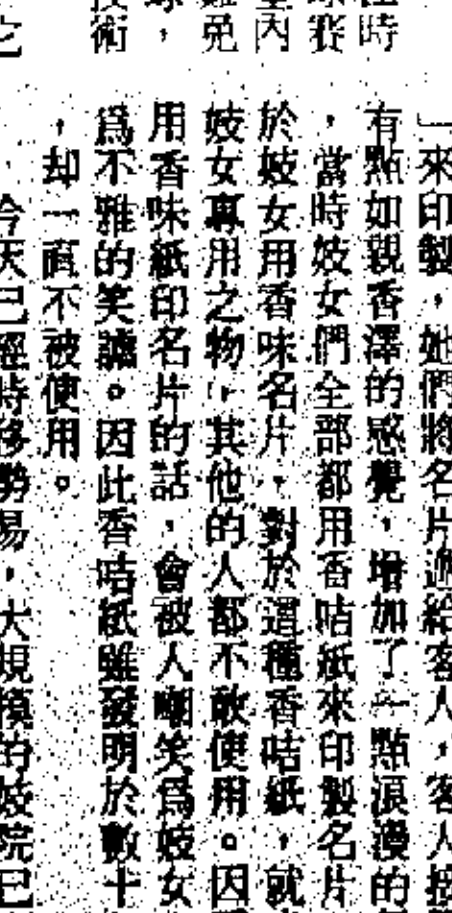 時
球賽
室內
難免
球，
技術
它
」來印製，她們將名片遞給客人，客人接
有點如親香澤的感覺，增加了一點浪漫的
，當時妓女們全部都用香咭紙來印製名片
於妓女用香味名片，對於這種香咭紙，就
妓女專用之物，其他的人都不敢使用。因
用香味紙印名片的話，會被人嘲笑爲妓女
爲不雅的笑謔。因此香咭紙雖發明於數十
，却一直不被使用。
今天已經時移勢易，大規模的妓院已